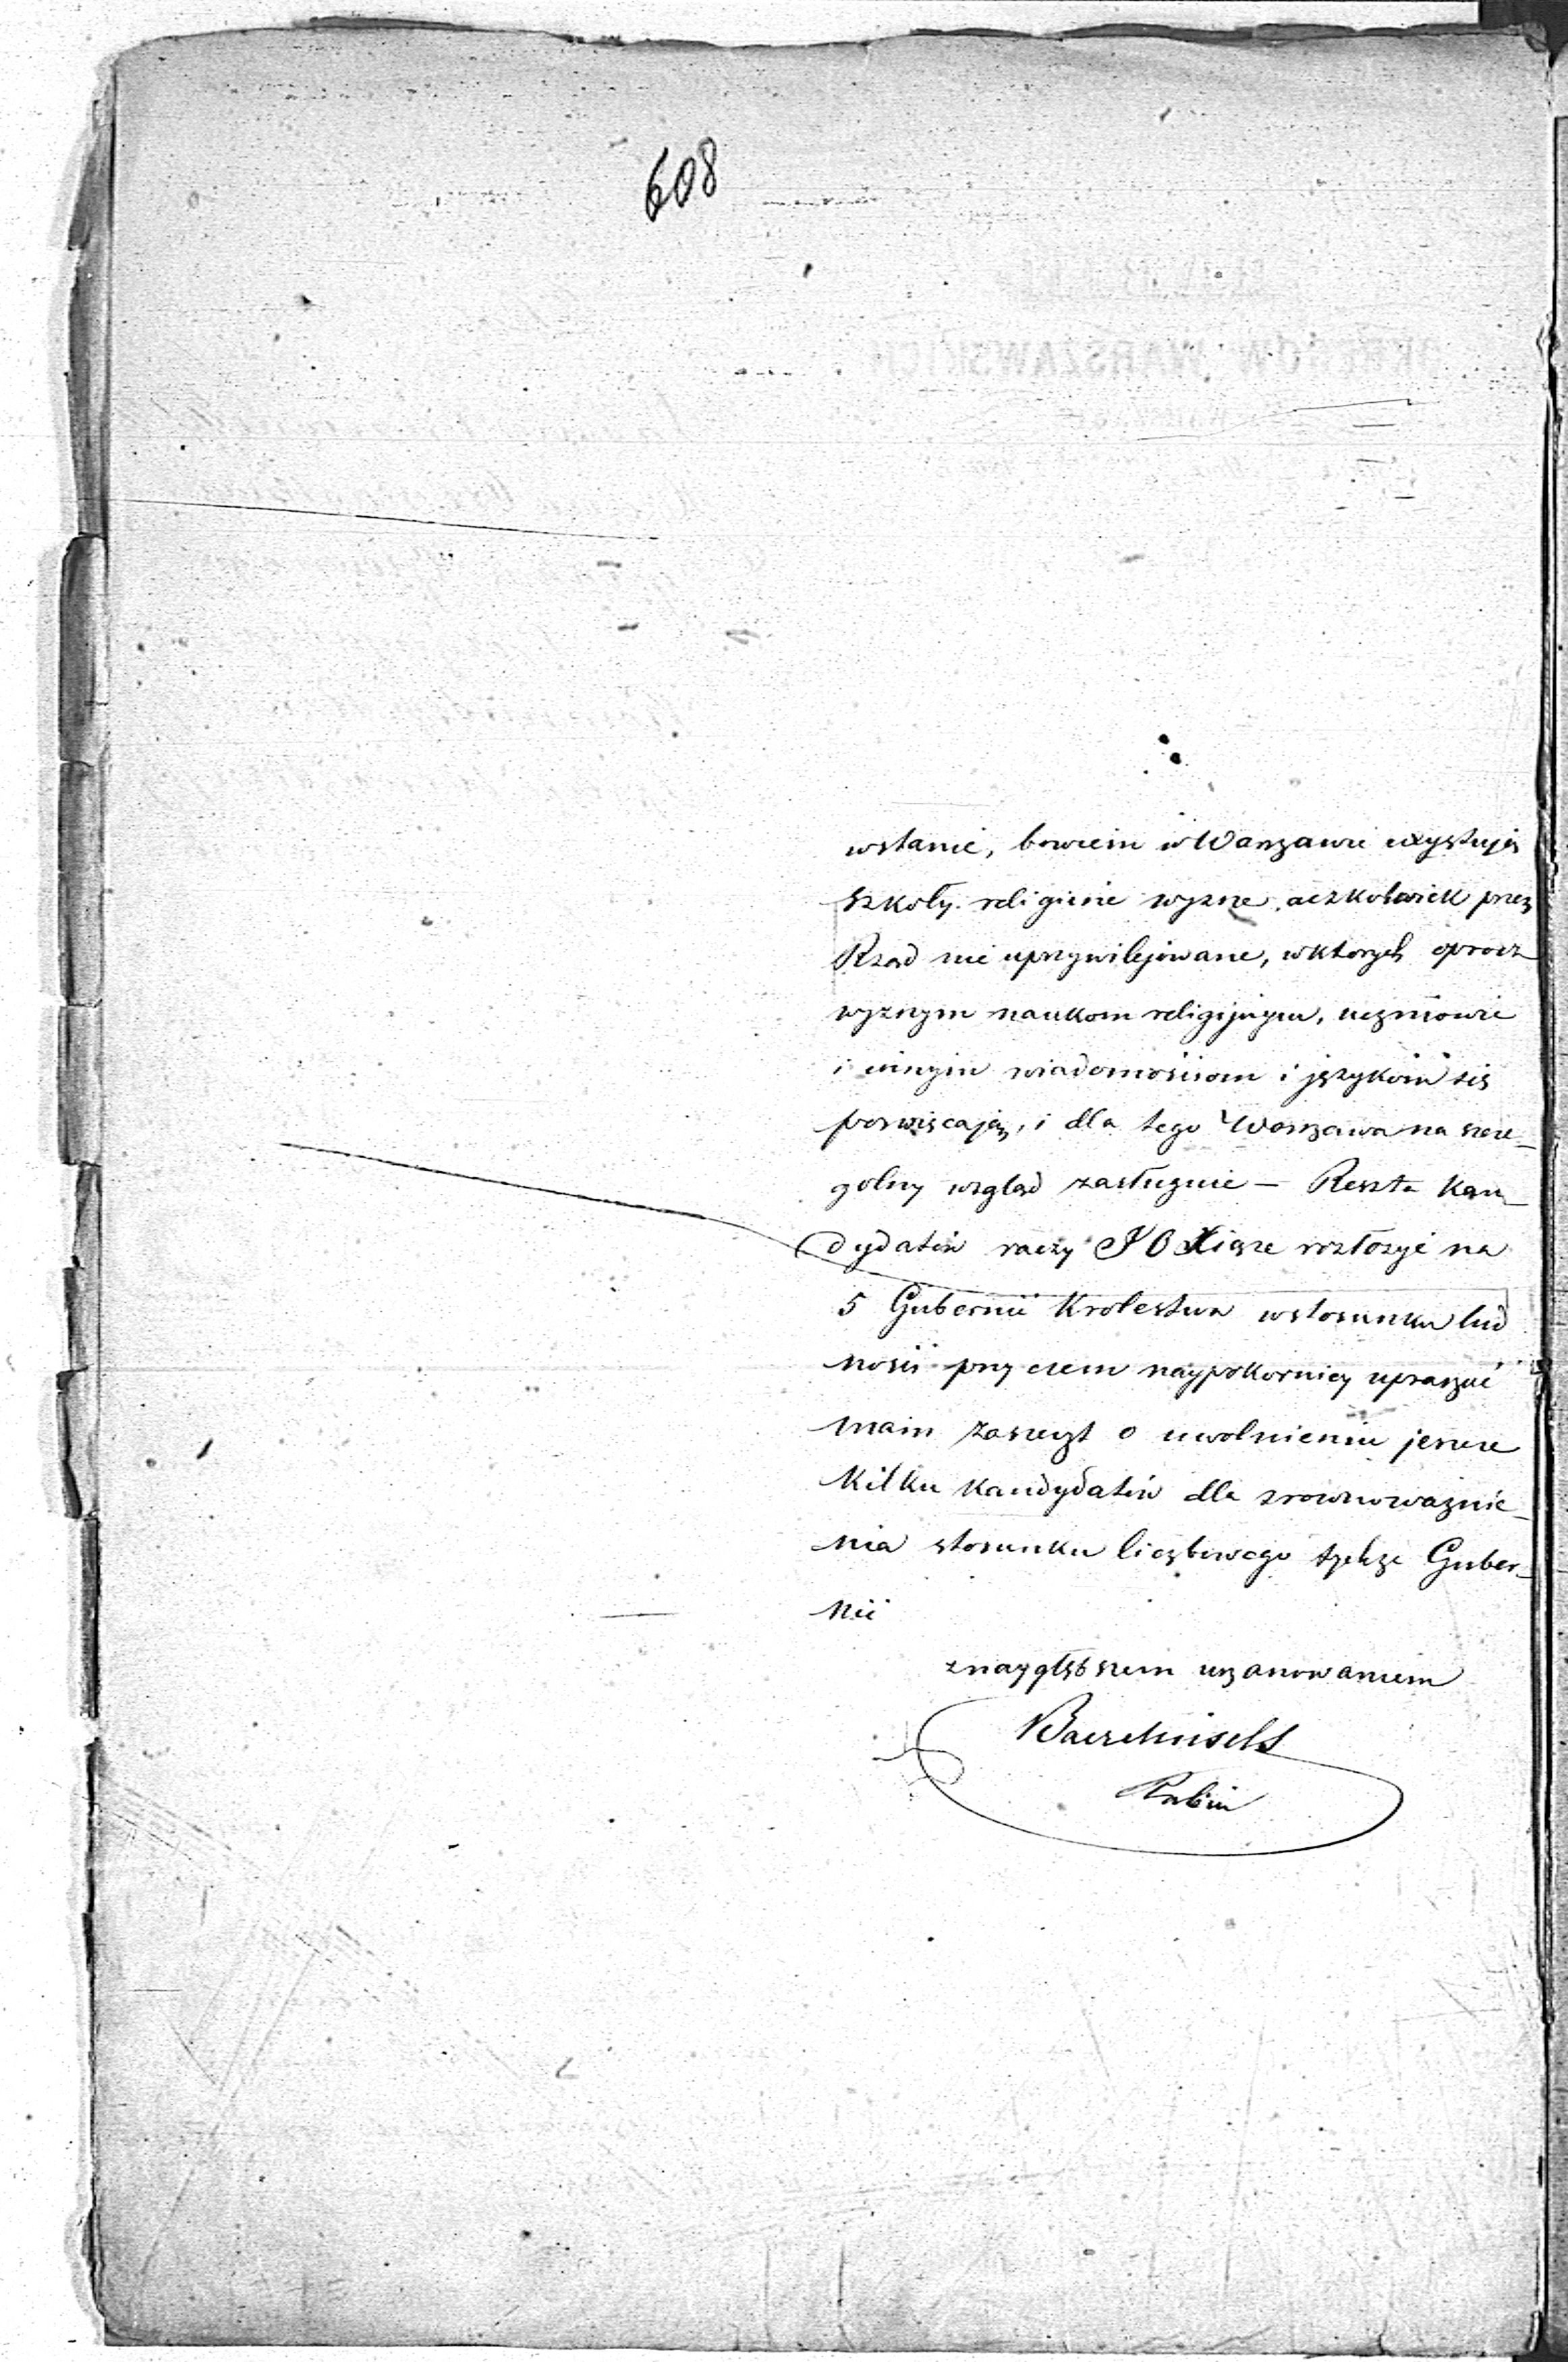 608
wstanie, bowiem w Warszawie exystują
szkoły religiine wyzsze aczkolwiek przez
Rząd nie uprzywilejowane, wktorych oprocz
wyzszym naukom religijnym, uczniowie
i innym wiadomosciom i językom się
poswięcają, i dla tego Warszawa na szcze-
golny wzgląd zasługuie — Reszta kan-
dydatów raczy JO Xiąze rozłozyć na
5 Gubernii Krolestwa wstosunku lud
nosci przyczem naypokorniey upraszać
mam zaszczyt o uwolnienie jeszcze
kilku kandydatów dla zrownowaznie-
nia stosunku liczbowego tychze Guber-
nii
znaygłębszem uszanowaniem
Baer Meisels
Rabin